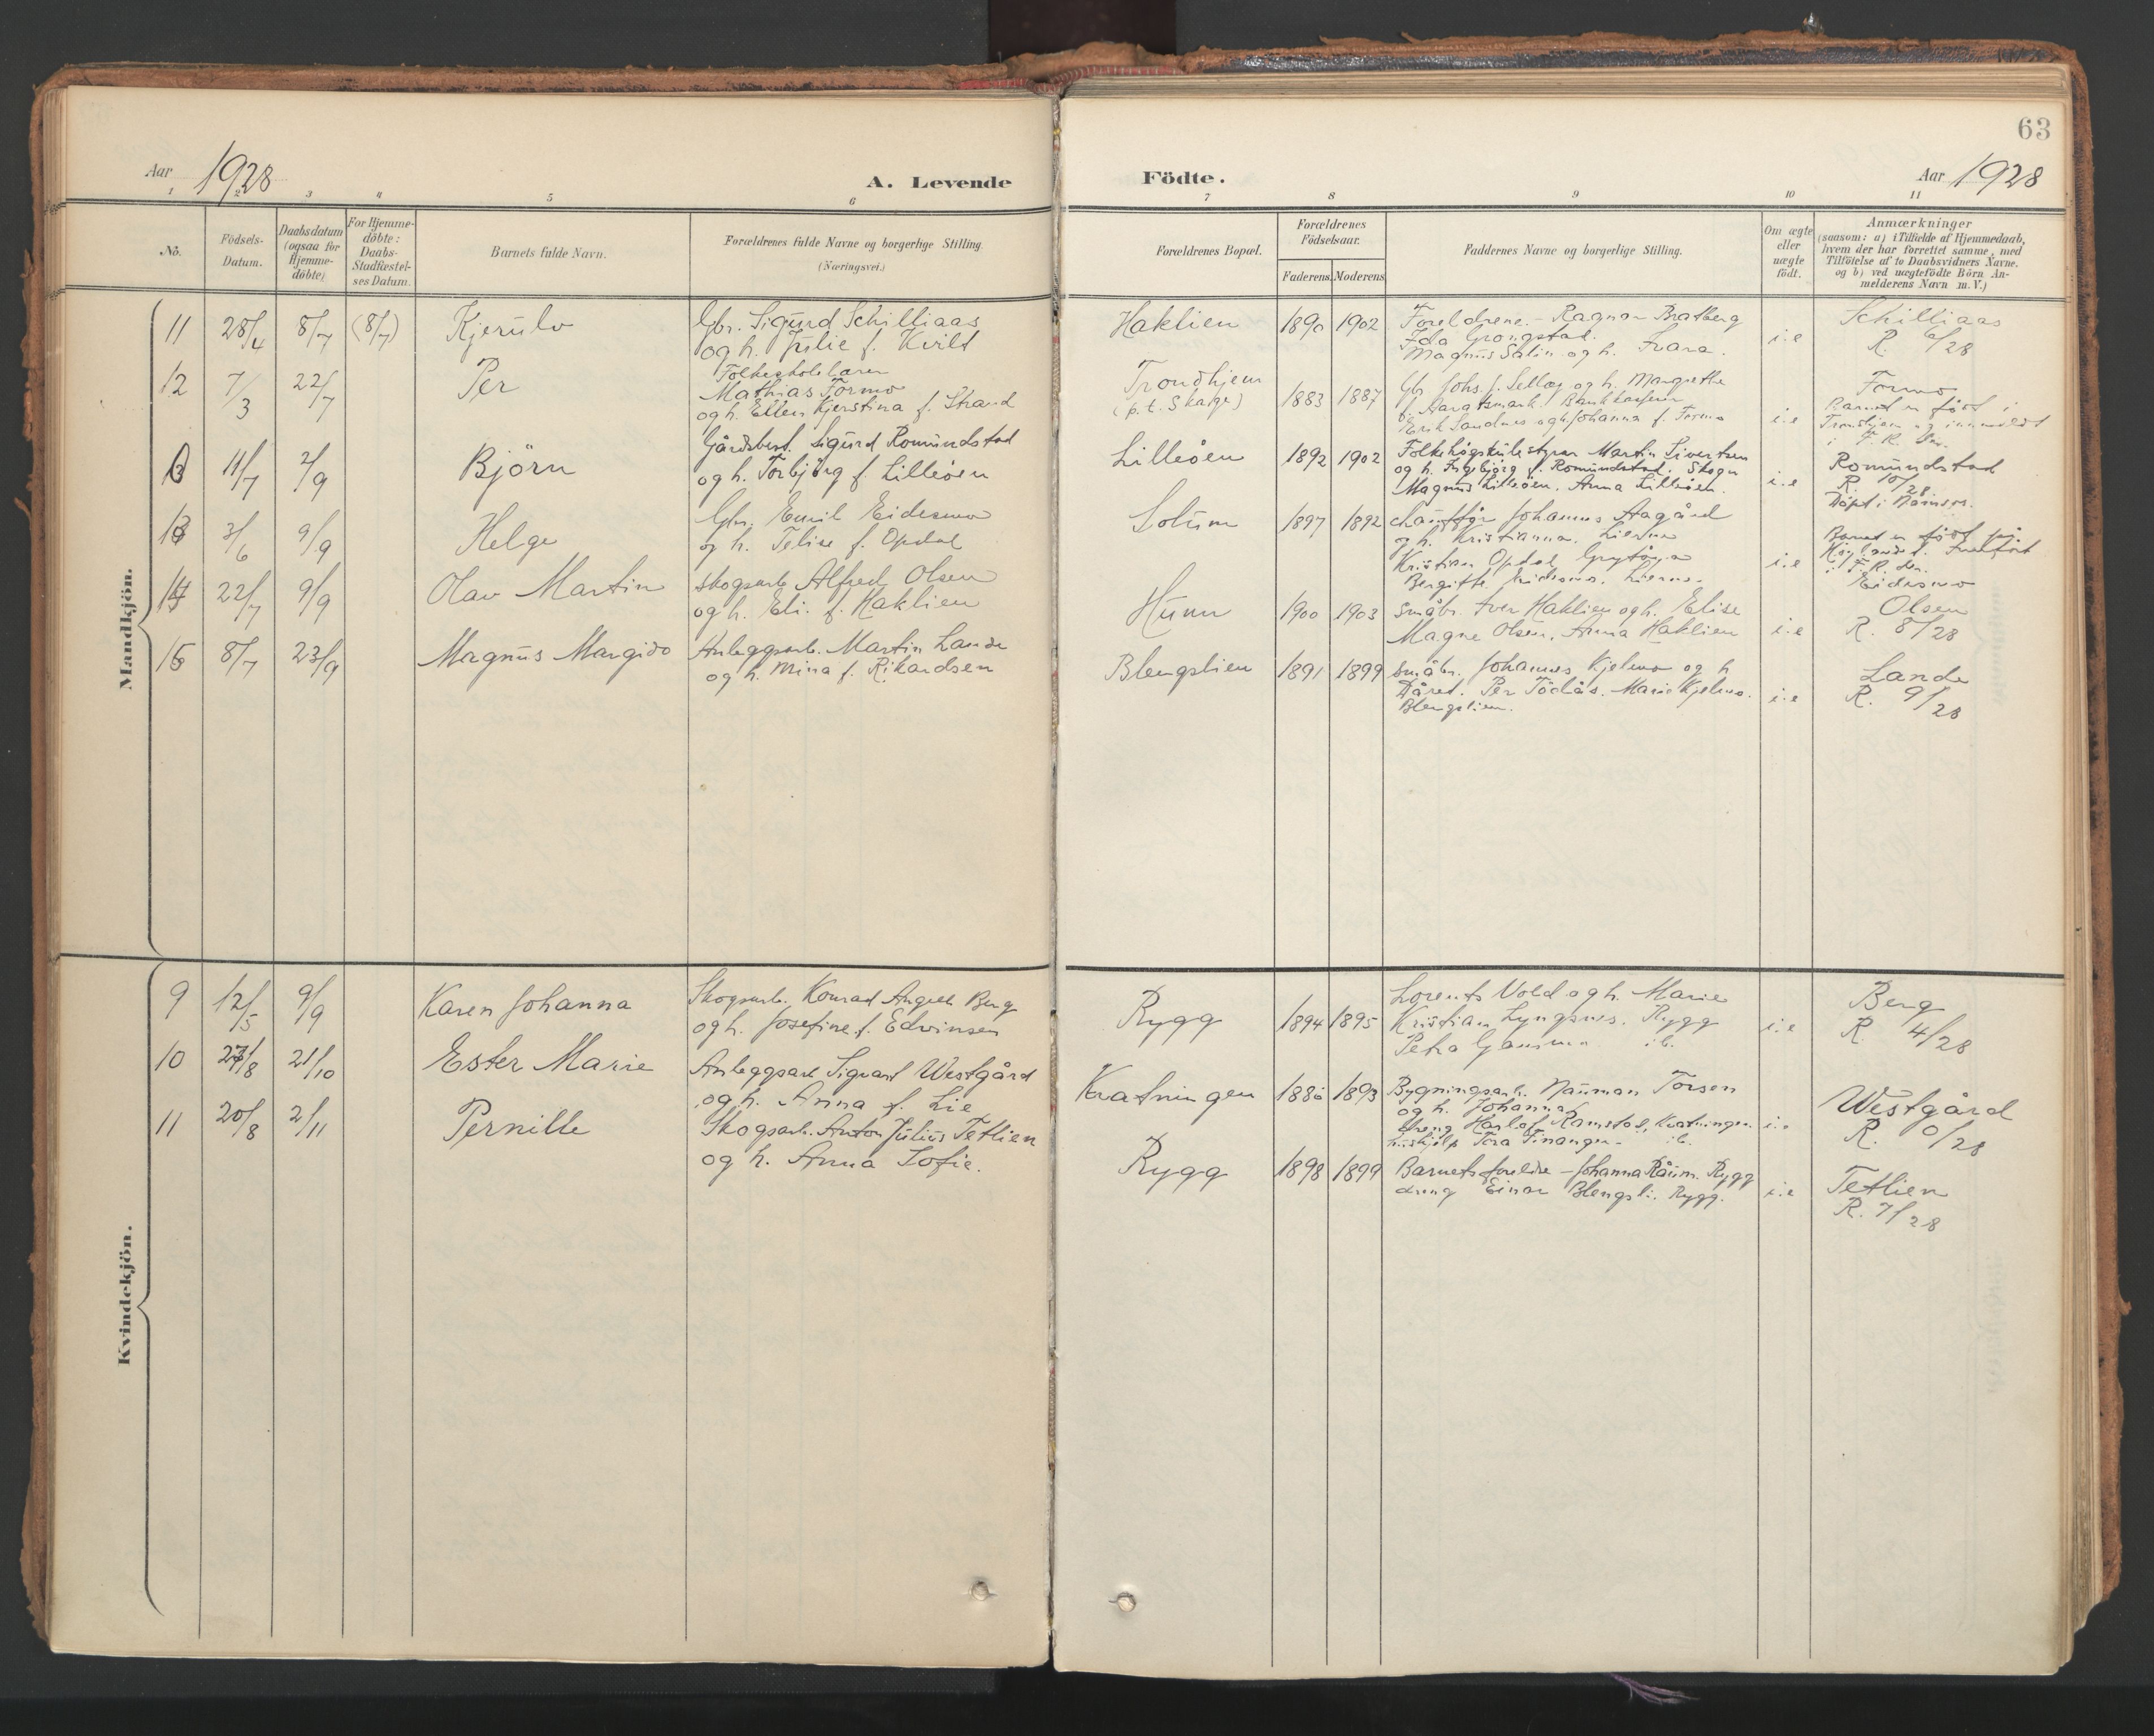 63
Aar 1928
A. Levende Födte.
Aar 1928
1 2 3 4 5 6 7 8 9 10 11
No.
Födsels-Datum.
Daabsdatum (ogsaa for Hjemme-döbte)
For Hjemme-döbte: Daabs-Stadfæstel-ses Datum.
Barnets fulde Navn.
Forældrenes fulde Navne og borgerlige Stilling. (Næringsvei.)
Forældrenes Bopæl.
Forældrenes Födselsaar.
Faderens. Moderens.
Faddernes Navne og borgerlige Stilling.
Om ægte eller uægte födt.
Anmærkninger
(saasom: a) i Tilfælde af Hjemmedaab,
hvem der har forrettet samme, med
Tilföielse af to Daabsvidners Navne.
og b) ved uægtefödte Börn An-
melderens Navn m. V.)
Mandkjön.
11 28/4 8/7 (8/7) Kjerulv
Gbr. Sigurd Schilliaas
og h. Julie f. Kvilt
Haklien 1890 1902
Foreldrene. - Ragnar Bratberg
Ida Grongstad.
Magnus Salin og h. Svara.
i.e
Schilliaas
R. 6/28
12 7/3 22/7 Per
Folkeskolelærer
Mathias Formo
og h. Ellen Kjerstina f. Strand
Trondhjem
(p.t. Skage) 1883 1887
Gbr Johs. f. Sellæg og h. Margrethe
f. Aargatsmark.
Erik Sandnes og h. Johanna f. Formo
i.e
Formo
Barnet er født i
Trondhjem og innmeldt
i F. R. der.
11/7 2/9 Björn
Gårdsbest. Sigurd Romundstad
og h. Torbjörg f. Lilleöen
Lilleöen 1892 1902
Folkehögskulestyrar Martin Sivertsen
og h. Ingebjörg f. Romundstad. Skogn
Magnus Lilleöen. Anna Lilleöen.
i.e
Romundstad
R. 10/28
Döpt i
3/6 9/9 Helge
Gbr. Emil Eidesmo
og h. Telise f. Opdal
Solum 1897 1892
Chauffør Johannes Aagård
og h. Kristianna. Lierne
Kristian Opdal
Bergitte Eidesmo. Lierne.
i.e
Barnet er født på
Innført
i F. R. der.
Eidesmo
14 22/7 9/9 Olav Martin
Skogsarb Alfred Olsen
og h. Eli. f. Haklien
Hunn 1900 1903
Småbr. Iver Haklien og h. Elise
Magne Olsen, Anna Haklien
i.e
Olsen
R. 8/28
8/7 23/9 Magnus Margido
Anleggsarb. Martin Lande
og h. Mina f. Rikardsen
Blengslien 1891 1899
Småbr. Johannes Kjelmo og h
Dåret. Per Tödås. Marie Kjelmo.
Blengslien.
i.e
Lande
R. 9/28
Kvindekjön.
9 12/5 9/9 Karen Johanna
Skogsarb. Konrad Angell Berg
og h. Josefine f. Edvinsen
Rygg 1894 1895
Lorents Vold og h. Marie
Kristian Lyngsnes. Rygg
Petra ib.
i.e
Berg
R. 4/28
10 27/8 21/10 Ester Marie
Anleggsarb Sigvart Westgård
og h. Anna f. Lie
Kvatningen 1886 1893
Bygningsarb. Nauman Torsen
og h. Johanna
dreng Harlof Ramstad, Kvatningen
hushjelp Tora Finangen. ib.
i.e
Westgård
R. 0/28
11 20/8 2/11 Pernille
Skogsarb. Anton Julius Tetlien
og h. Anna Sofie.
Rygg 1898 1899
Barnets foreldre - Johanna Råum. Rygg
dreng Einar Blengsli. Rygg.
i.e
Tetlien
R. 7/28